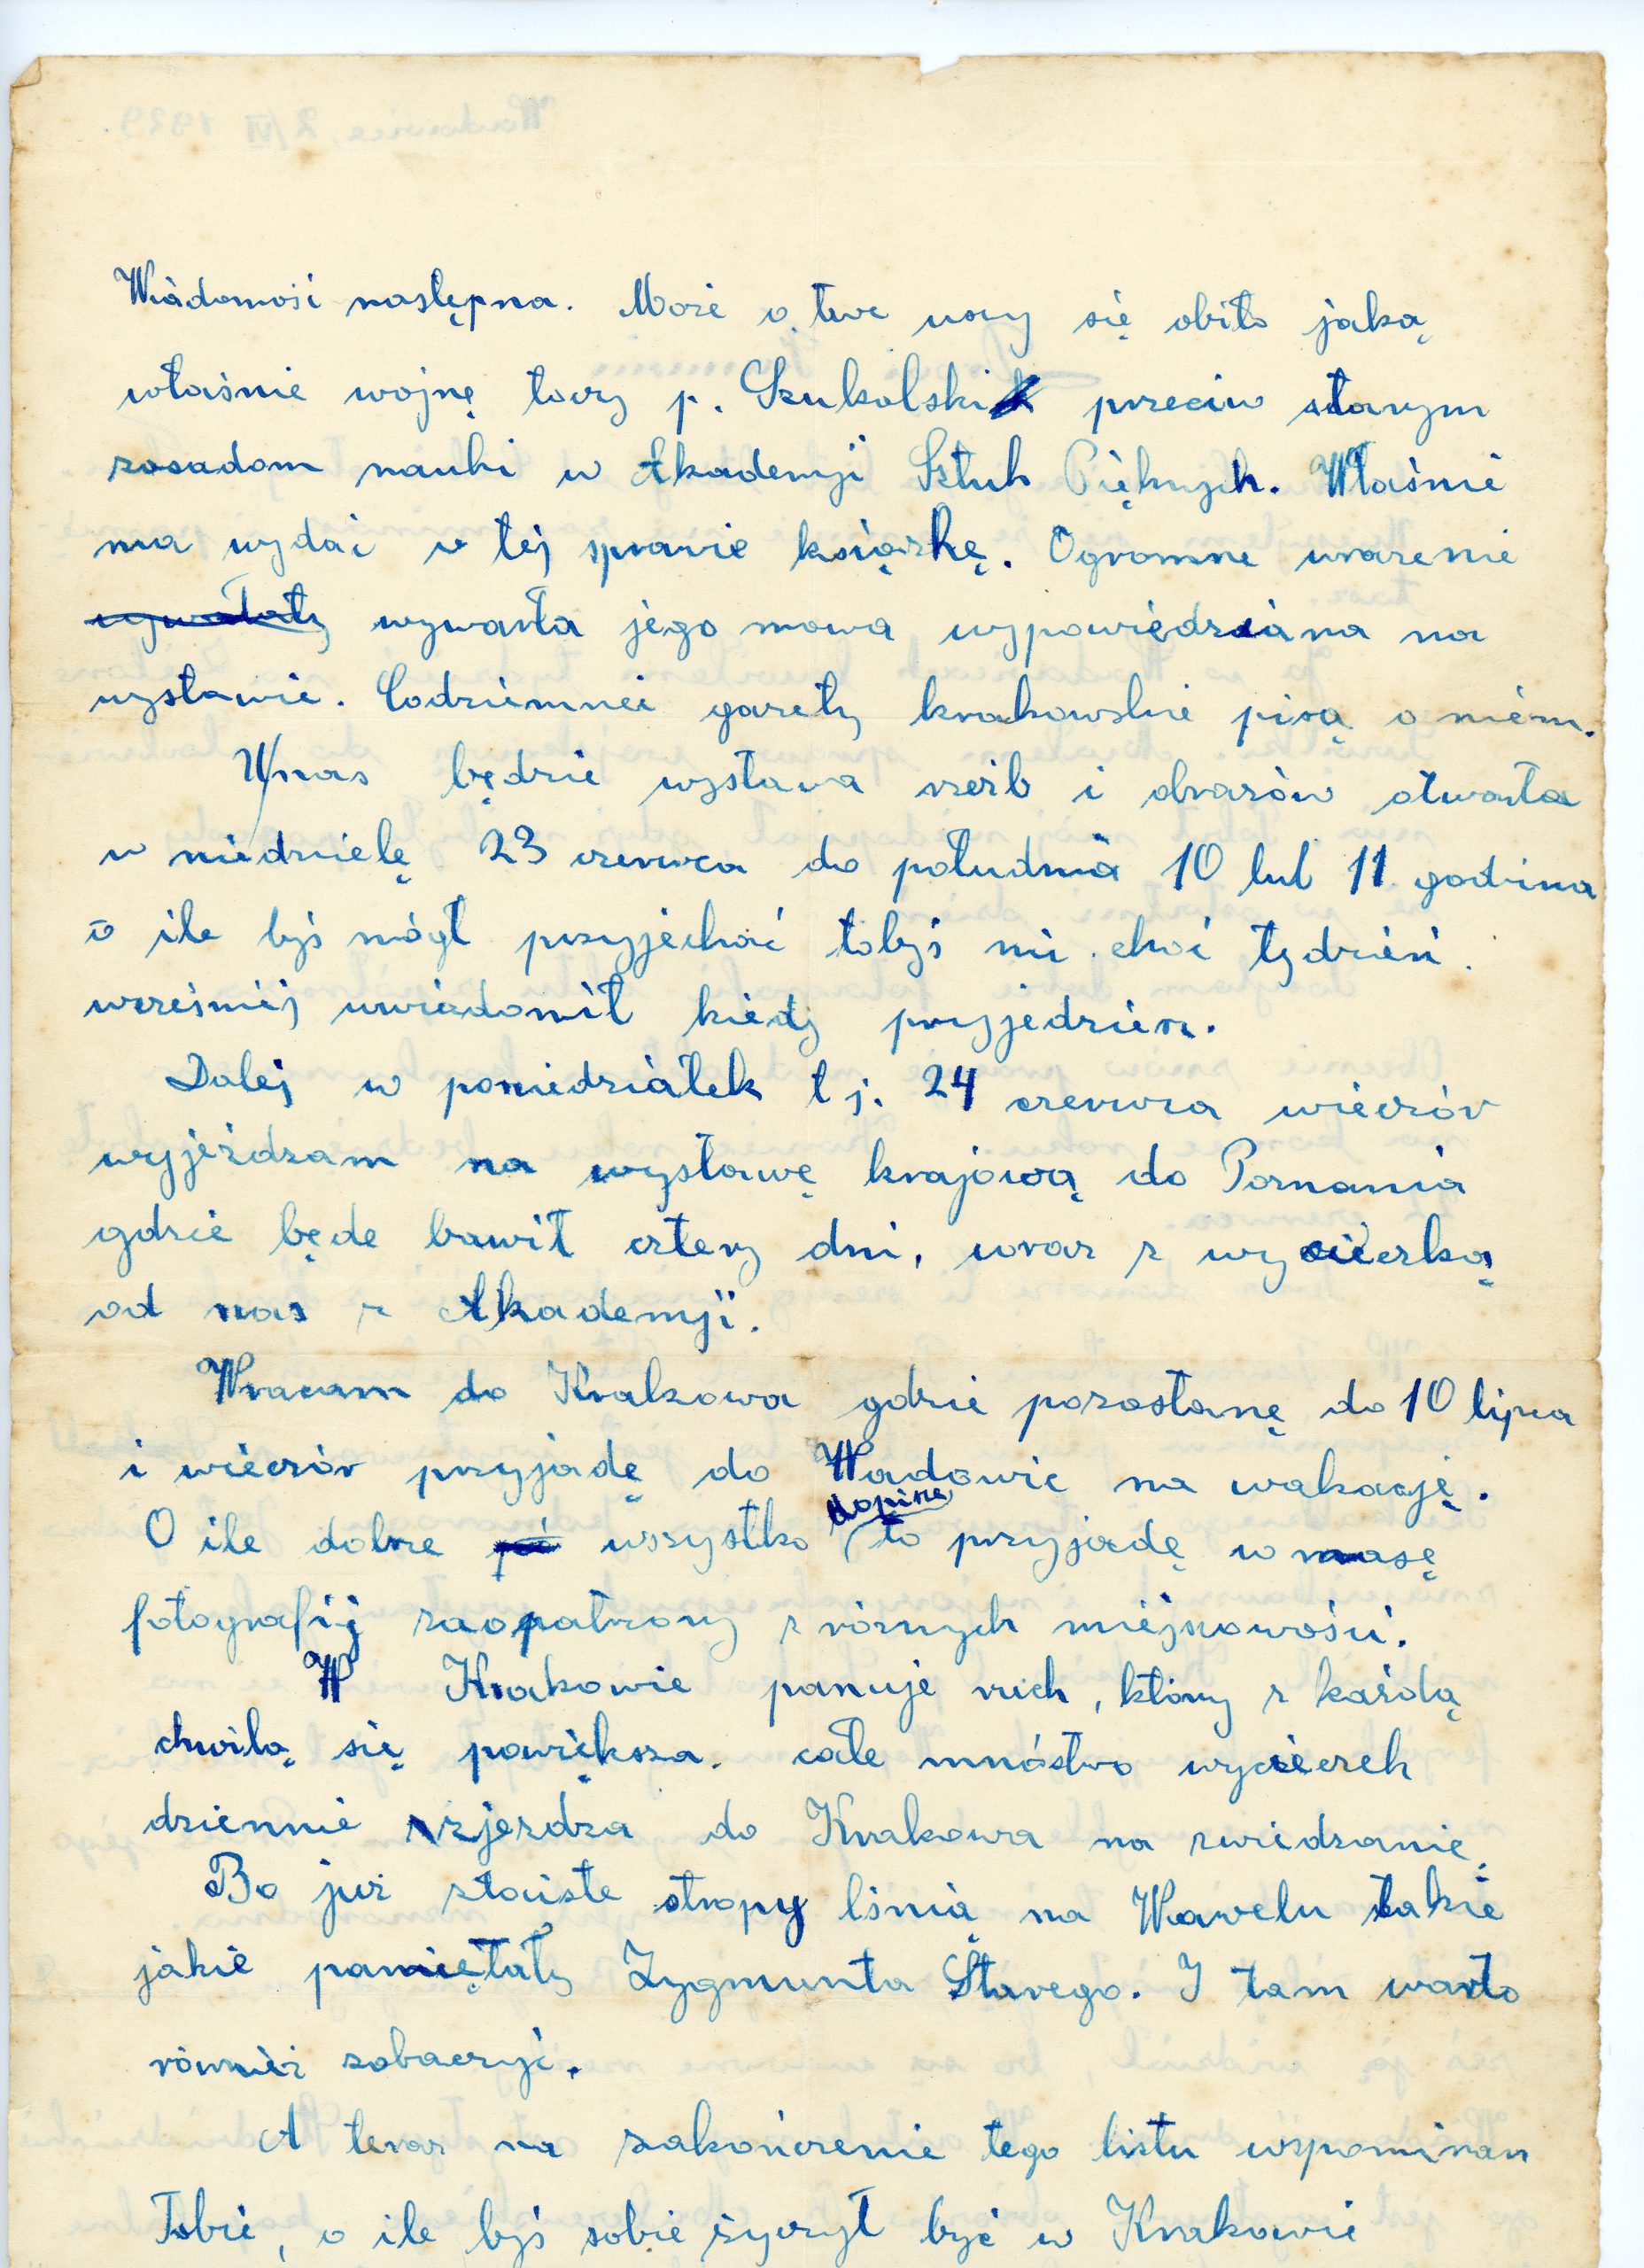 Wiadomość następna. Może o twe uszy się obiło jaką
właśnie wojnę toczy p. Szukalski przeciw starym
zasadom nauki w Akademji Sztuk Pięknych. Właśnie
ma wydać w tej sprawie książkę. Ogromne wrażenie
wywołały wywarła jego mowa wypowiedziana na
wystawie. Codziennei gazety krakowskie piszą o niem.
U nas będzie wystawa rzeźb i obrazów otwarta
w niedzielę 23 czerwca do południa 10 lub 11 godzina
o ile byś mógł przyjechać tobyś mi choć tydzień
wcześniej uwiadomił kiedy przyjedziesz.
Dalej w poniedziałek t j. 24 czerwca wieczór
wyjeżdzam na wystawę krajową do Poznania
gdzie będe bawił cztery dni, wraz z wycieczką
od nas z Akademji.
Wracam do Krakowa gdzie pozostanę do 10 lipca
i wieczór przyjadę do Wadowic na wakację.
O ile dobrze wszystko dopisze to przyjadę w masę
fotografij zaopatrzony z róznych miejscowości.
W Krakowie panuje ruch, który z każdą
chwilą się powiększa. całe mnóstwo wycieczek
dziennie zjezdza do Krakowa na zwiedzanie.
Bo już złociste stropy lśnią na Wawelu takie
jakie pamiętały Zygmunta Starego. I tam warto
również zobaczyć.
A teraz na zakończenie tego listu wspominam
Tobie, o ile byś sobie życzył być w Krakowie